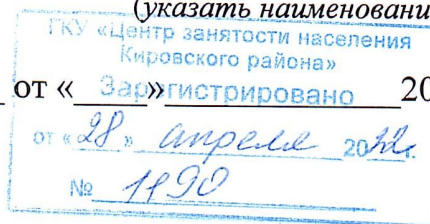 (указать наименовани
ГКУ «Центр занятости населения
Кировского района»
от « » 20
Зарегистрировано
от « 28 » апреля 2022г.
№ 1190